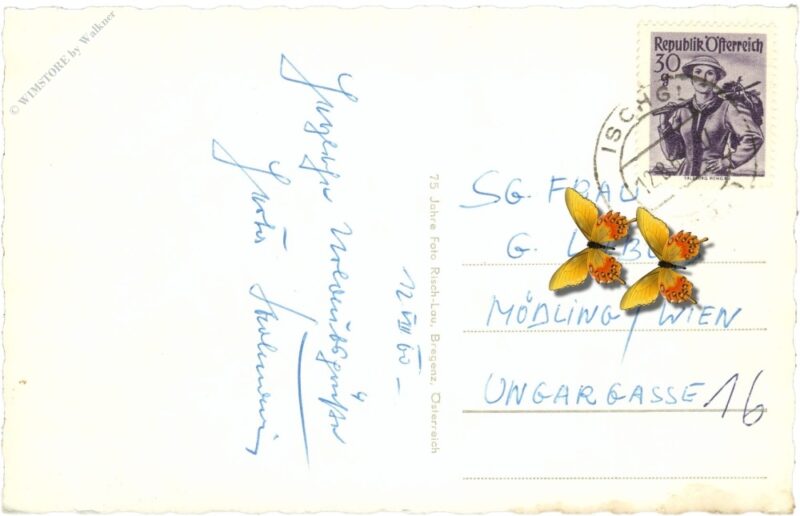 © WIMSTORE by Walkner
Urlaubsgrüße
12 VIII 60
75 Jahre Foto Risch-Lau, Bregenz, Österreich
Republik Österreich
30
g
SALZBURG PONGAU
ISCHGL
12.8.
SG. FRAU
G.
MÖDLING / WIEN
UNGARGASSE 16